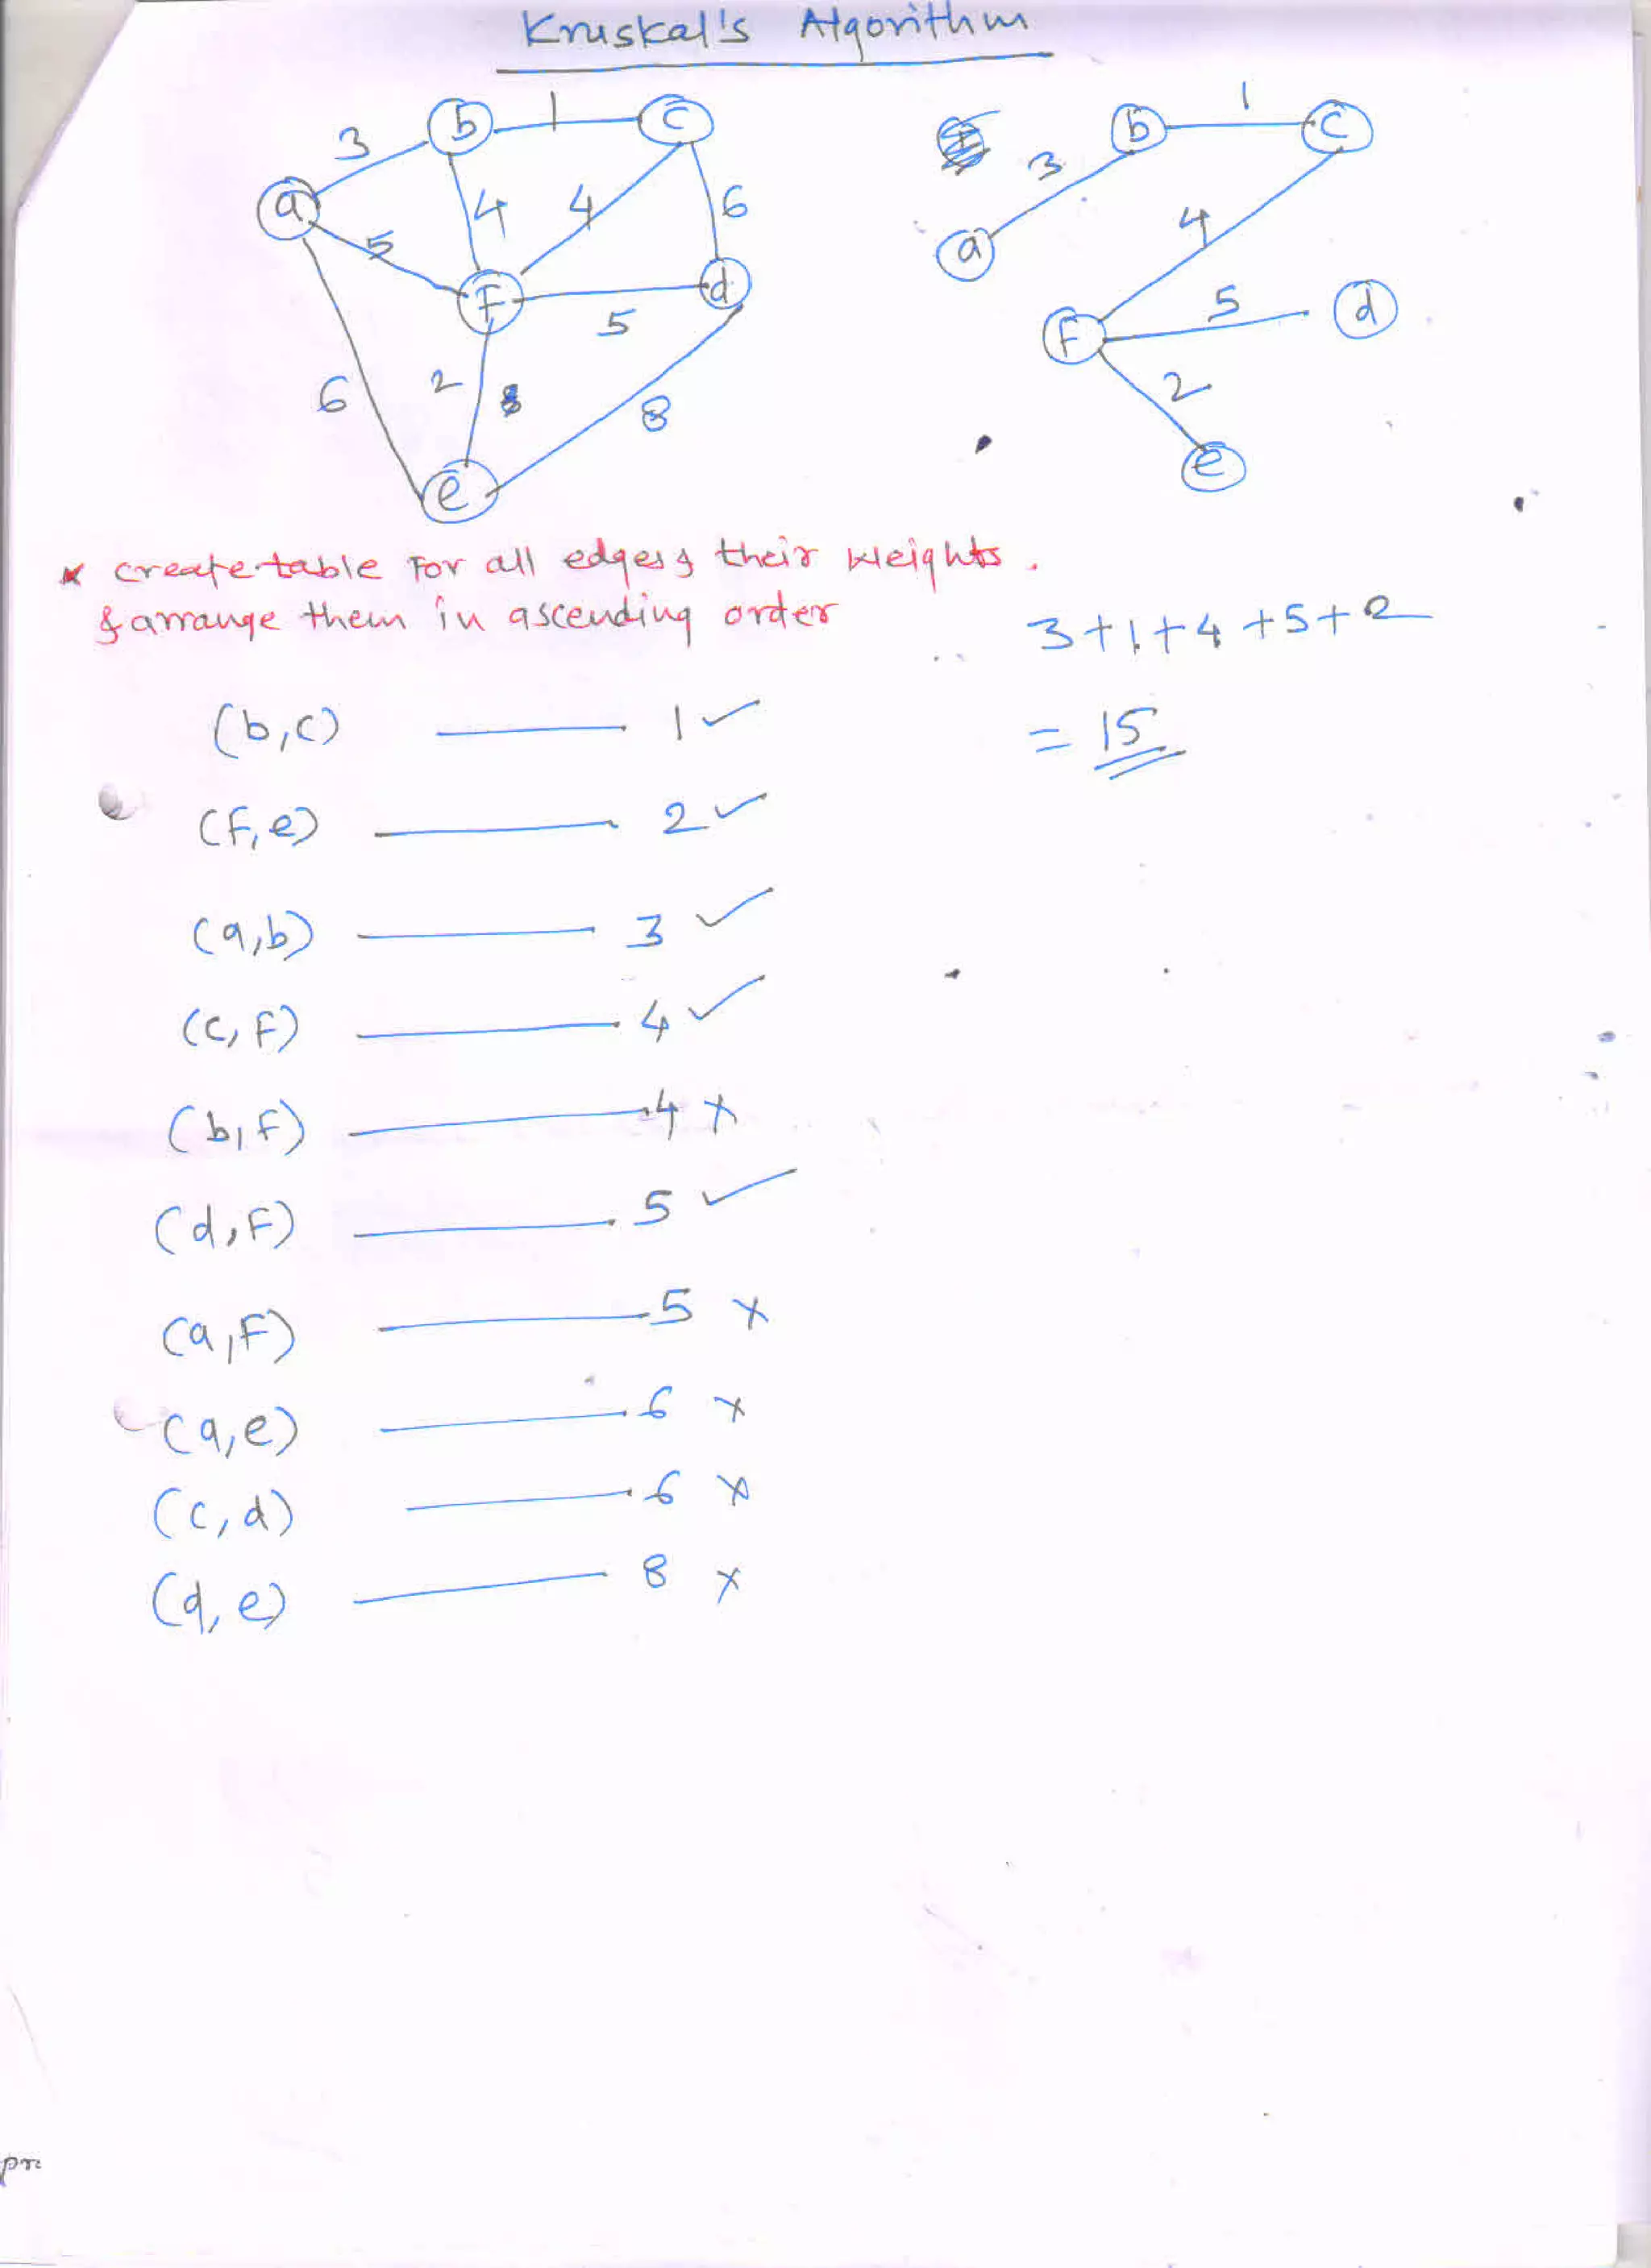 Kruskal's Algorithm
b 1 c
3
a
4 4 6
5
F d
5
6 2 8
e
b 1 c
3
a
4
5 d
F
2
e
* create table For all edges & their weights.
& arrange them in ascending order
3+1+4+5+2
= 15
(b,c) —— 1 ✓
(F,e) —— 2 ✓
(a,b) —— 3 ✓
(c,F) —— 4 ✓
(b,F) —— 4 ×
(d,F) —— 5 ✓
(a,F) —— 5 ×
(a,e) —— 6 ×
(c,d) —— 6 ×
(d,e) —— 8 ×